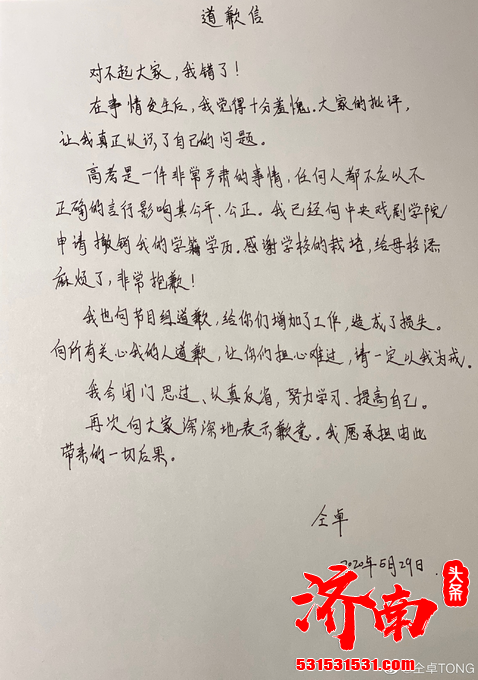 道歉信
对不起大家，我错了！
在事情发生后，我觉得十分羞愧。大家的批评，
让我真正认识了自己的问题。
高考是一件非常严肃的事情，任何人都不应以不
正确的言行影响其公平、公正。我已经向中央戏剧学院
申请撤销我的学籍学历。感谢学校的栽培，给母校添
麻烦了，非常抱歉！
我也向节目组道歉，给你们增加了工作，造成了损失。
向所有关心我的人道歉，让你们担心难过，请一定以我为戒。
我会闭门思过、认真反省，努力学习、提高自己。
再次向大家深深地表示歉意。我愿承担由此
带来的一切后果。
仝卓
2020年5月29日.
济南
头条
531531531.com
@仝卓TONG